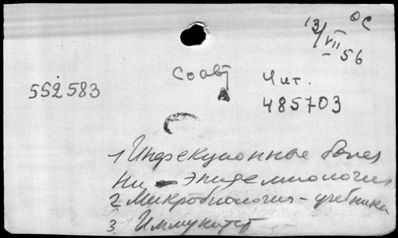 13/VII 56
ОС
Соавт
Чит.
552583
485703
1 Инфекционные болез
ни - эпидемиология
2 Микробиология - учебники
3 Иммунитет